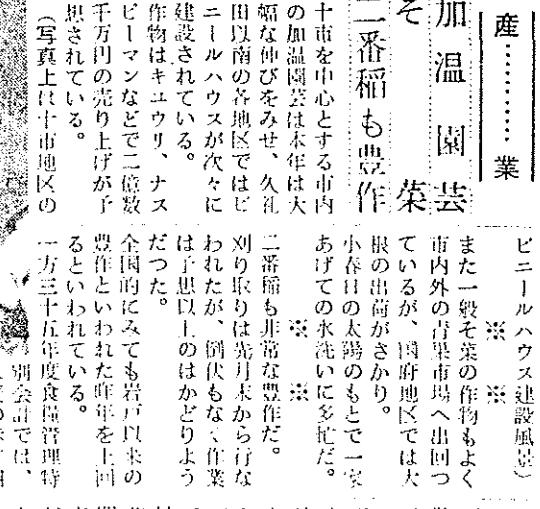 産…………業
加温園芸
そ 菜
二番稲も豊作
十市を中心とする市内
の加温園芸は本年は大
幅な伸びをみせ、久礼
田以南の各地区ではビ
ニールハウスが次々に
建設されている。
作物はキュウリ、ナス
ピーマンなどで二億数
千万円の売り上げが予
想されている。
(写真上は十市地区の
ビニールハウス建設風景)
※ ※
また一般そ菜の作物もよく
市内外の青果市場へ出回つ
ているが、国府地区では大
根の出荷がさかり。
小春日の太陽のもとで一家
あげての水洗いに多忙だ。
※ ※
二番稲も非常な豊作だ。
刈り取りは先月末から行な
われたが、倒伏もなく作業
は予想以上のはかどりよう
だつた。
全国的にみても岩戸以来の
豊作といわれた昨年を上回
るといわれている。
一方三十五年度食糧管理特
別会計では、